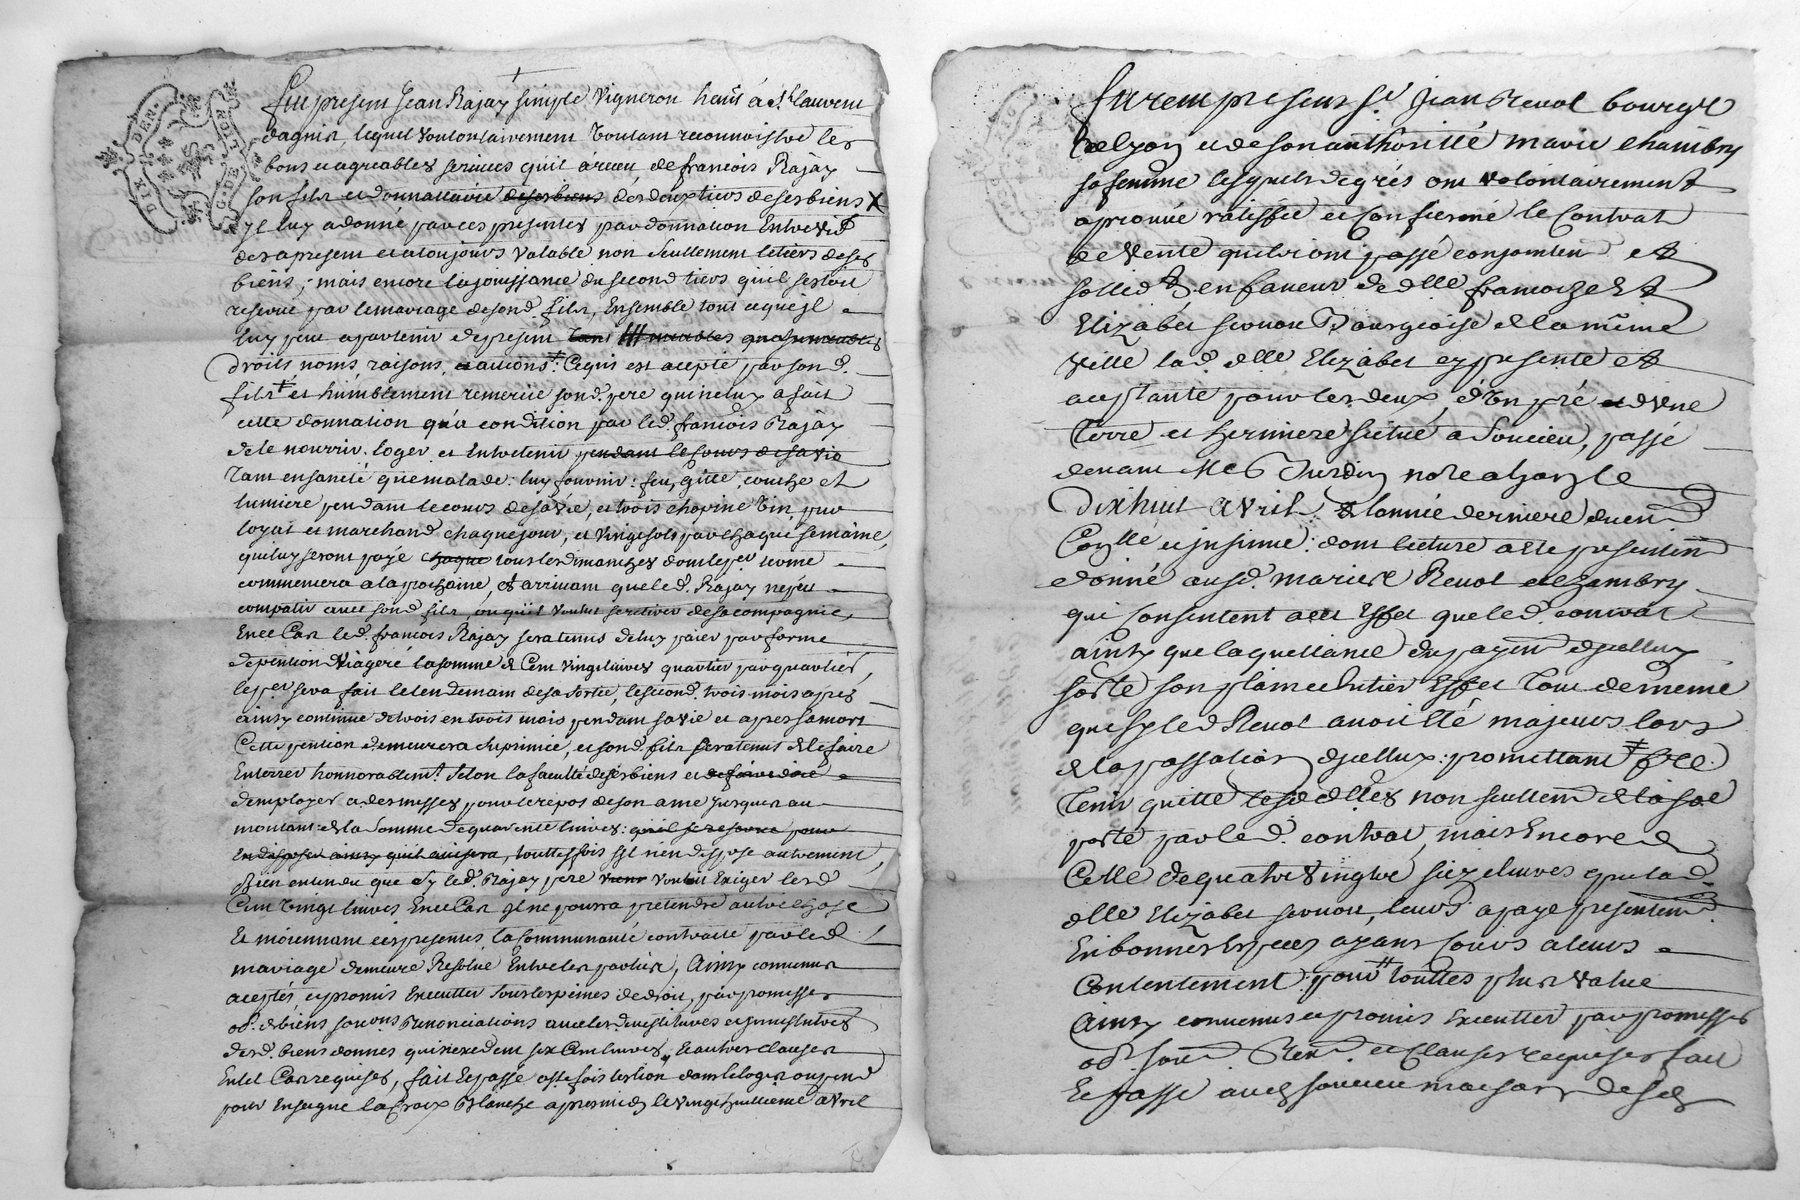 DIX DEN.
G. DE LION
Fut present Jean Rajay simple Vigneron hant à St laurent
dagnis, lequel volontairement voulant reconnoistre les
bons et agreables services quil à receu de francois Rajay
son fils et donnattaire desesbiens des deux tiers de ses biens X
yl luy a donné par ces presentes par donnation Entre vifs
des apresent et a toujours valable non seullement le tiers de ses
biens, mais encore la jouissance du second tiers quil sestoit
reservé par le mariage de sond. fils, Ensemble tout ce qu'jl
luy peut apartenir de present tant meubles
droits noms, raisons, et actions. Ce quis est acepté par sond.
fils et humblement remercié sond. pere qui ne luy a fait
cette donnation qu'à condition par led. francois Rajay
de le nourrir. loger et Entretenir pendant le cours de sa vie
Tant en santé que malade: luy fournir: feu, gitte, couche et
lumiere pendant le cours de sa vie, et trois chopine Vin pur
loyal et marchand chaque jour, et vingt sols par chaque semaine,
qui luy seront payé chaque tous les dimanches dont le per terme
commencera a la prochaine, et arrivant que le d. Rajay ne peu
compatir avec sond. fils ou quil voulut se retirer de sa compagnie,
En ce Cas led. francois Rajay sera tenus de luy paier par forme
de pention Viageré la somme de Cent vingt livres quartier par quartier,
le per sera fait le lendemain de sa sortie, le second. trois mois apres
ainsy continue de trois en trois mois pendant sa vie et apres sa mort
Cette pention demeurera suprimée, et sond. fils sera tenus de le faire
Enterrer honnorablemt. selon la faculté de ses biens et de faire dire
d'employer a des messes pour le repos de son ame jusques au
montant de la somme de quarente livres: quil se reserve pour
En disposer ainsy quil avisera, touttes fois syl n'en dispose autrement,
Bien entendu que sy led. Rajay pere vouloit Exiger lesd.
Cent vingt livres En ce Cas yl ne pourra pretendre autre chose
Et moiennant ces presentes la communauté contracté par led.
mariage demeure Resolue Entre les parties, Ainsy convenus
aceptés, et promis Executter sous les peines de droit, par promesses
ob. de biens
desd. biens donnés qui n'exedent six Cent livres, et autres clauses
En tel Cas requises, fait et passé
pour Enseigne la croix Blanche apres midy le vingt huittieme avril
Furent present sr. Jean Revol bourgs
de lyon et de son authoritté marie chambry
sa femme lesquels de grés ont volontairement
aprouvé ratiffié et Confirmé le Contrat
de Vente quils ont passé conjointemt et
sollidt. en faveur de dlle francoize Et
Elizabet servonat Bourgeoise de la même
ville lad. dlle Elizabet cy presente et
aceptante pour les deux, d'Un pré et d'Une
Terre et hermiere situé a soucieu, passé
devant Me Jurdin nore a lyon le
dixhuit avril de l'année derniere duemt
Conllé et jnsinué: dont lecture a esté presentemt
donné ausd. mariés Revol et chambry
qui consentent a cet Effet que led. contrat
ainsy que la quittance du payemt d'jcelluy
sorte son plain et Entier Effet Tout de meme
que sy led Revol avoit Eté majeurs lors
de la passation d'jcelluy: promettant
Tenir quitte lesd. dlles non seullemt de la so.e
porté par led. contrat, mais Encore de
Celle de quatre vingt seize livres que lad.
dlle Elizabet servonat, leurs a paye presentemt.
En bonnes Especes ayant cours a leurs
Contentement pour touttes plus value
Ainsy convenus et promis Executter par promesses
ob. soum. Ren. et clauses requises fait
Et passé